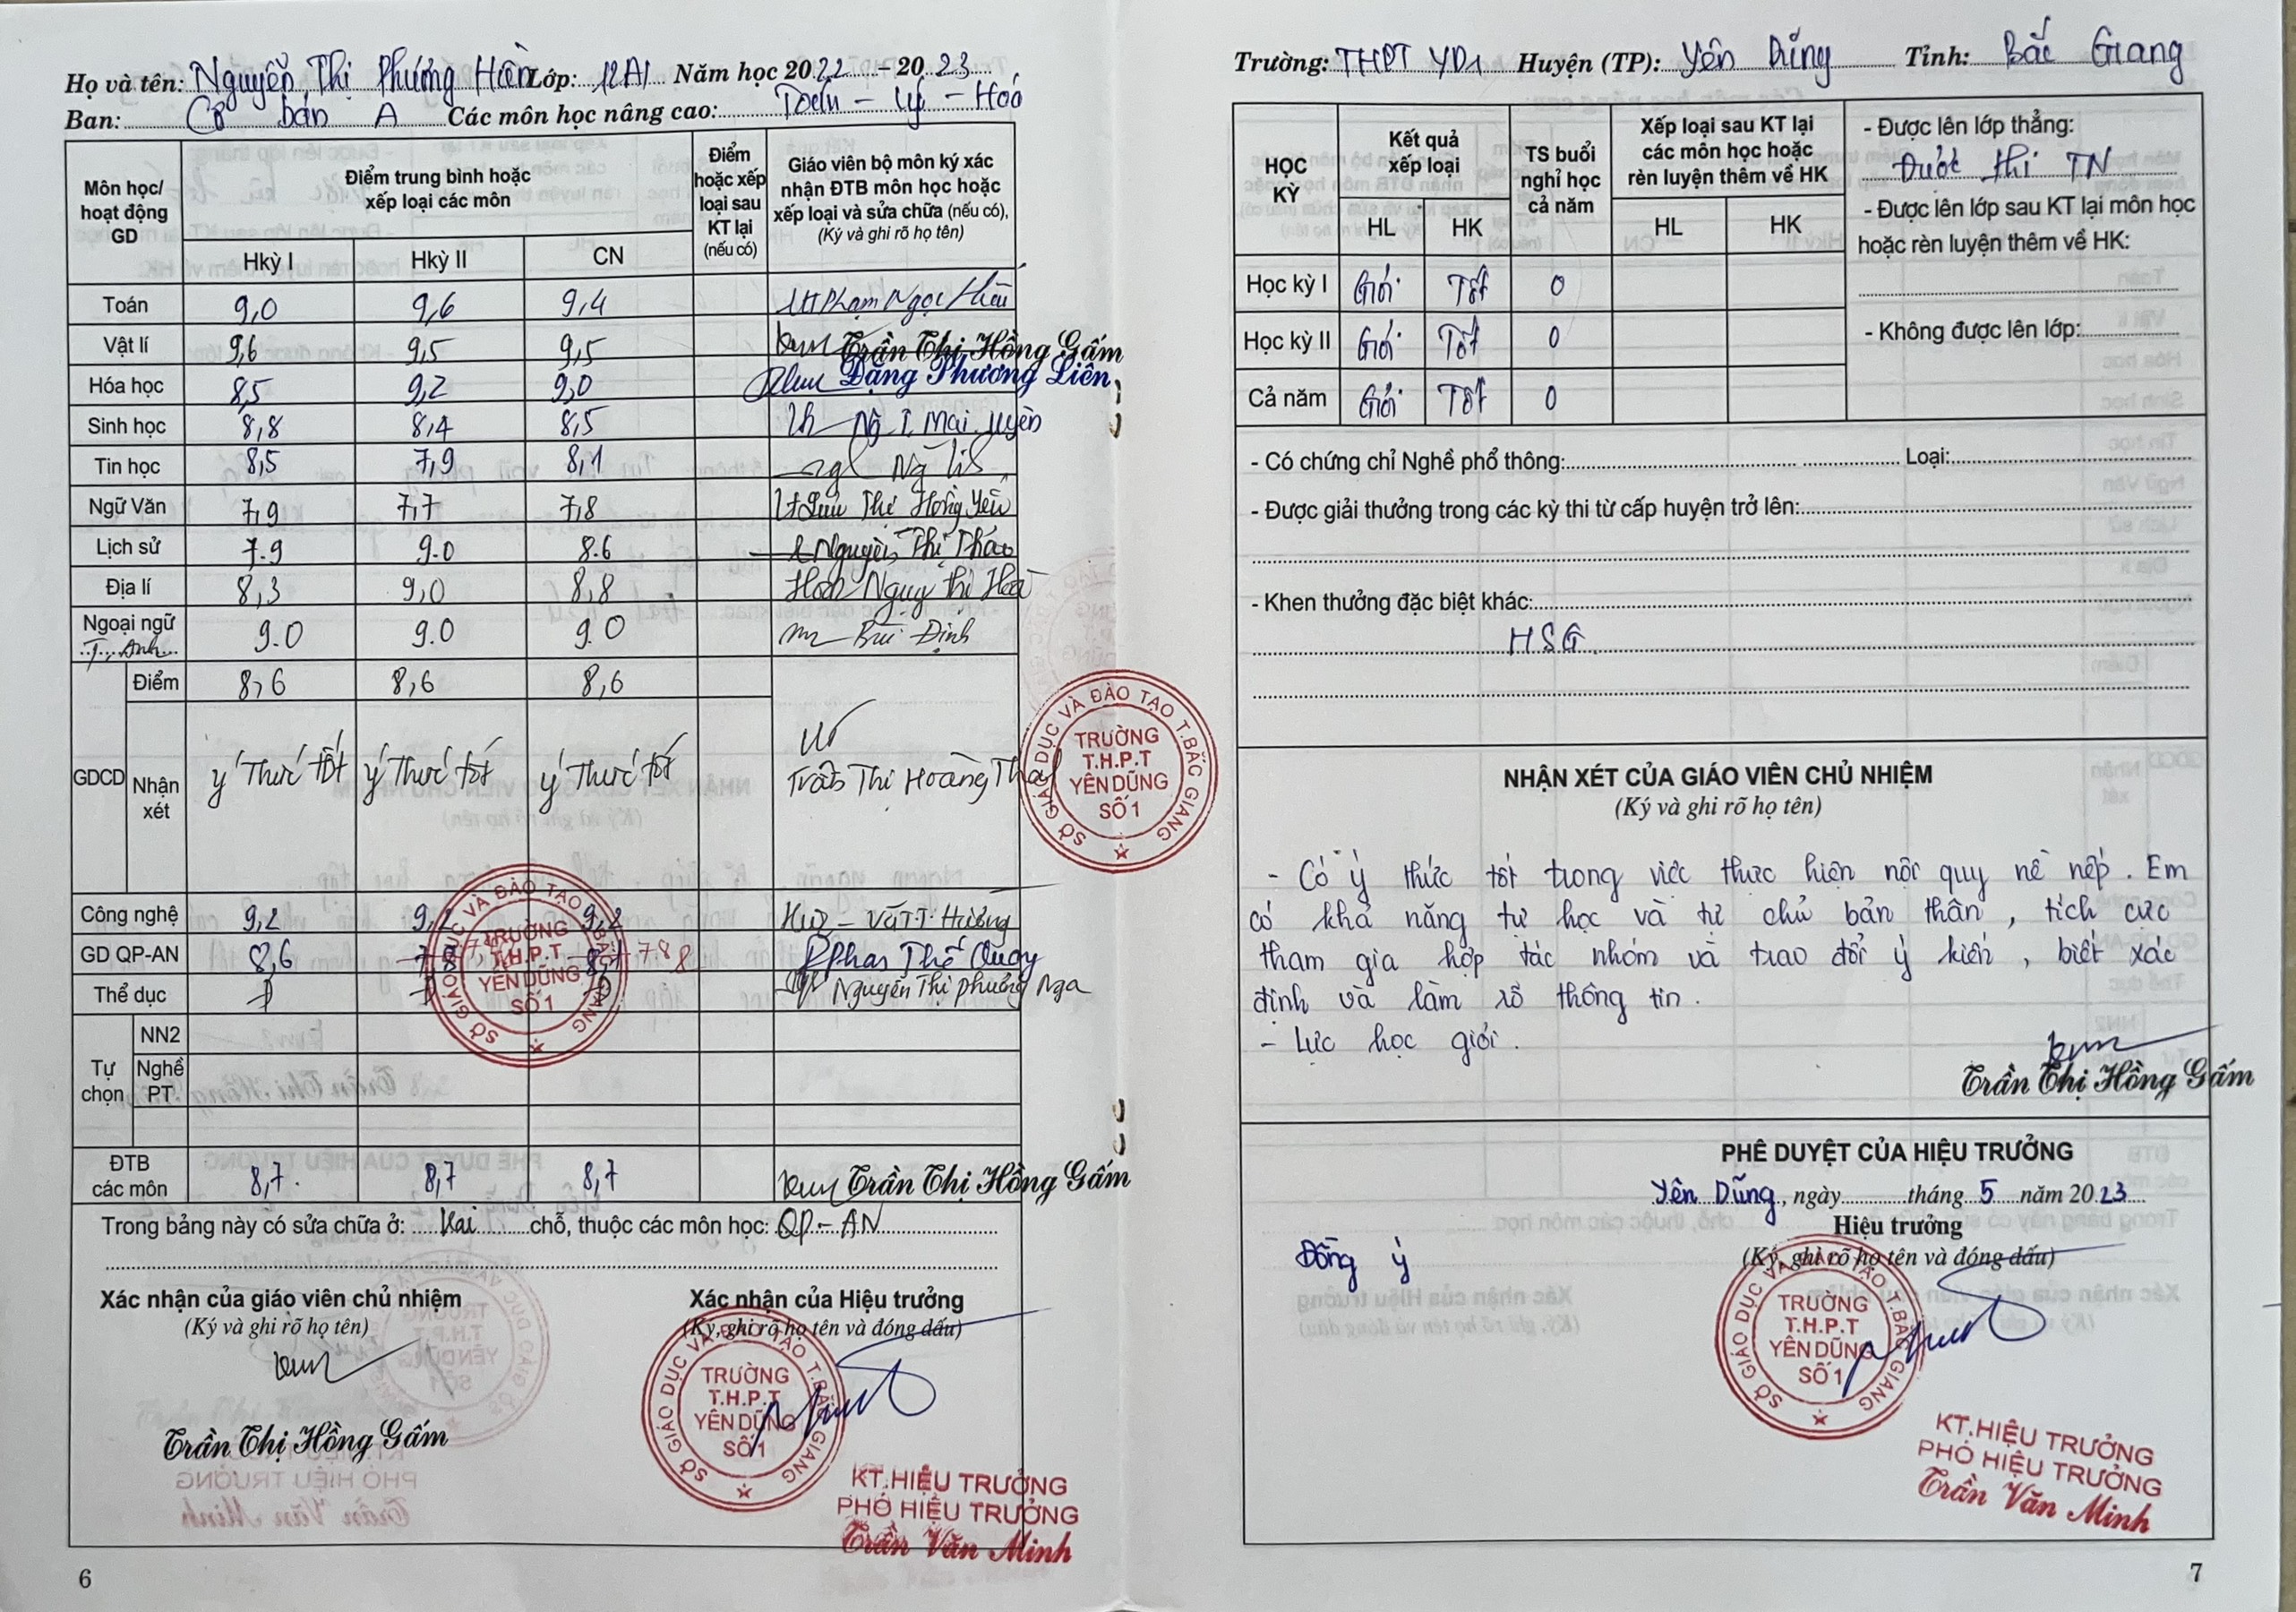 Họ và tên: Nguyễn Thị Phương Hiền Lớp: 12A1 Năm học 2022 - 2023
Ban: Cơ bản A Các môn học nâng cao: Toán - Lý - Hoá
Môn học/ hoạt động GD
Điểm trung bình hoặc xếp loại các môn
Hkỳ I Hkỳ II CN
Điểm hoặc xếp loại sau KT lại (nếu có)
Giáo viên bộ môn ký xác nhận ĐTB môn học hoặc xếp loại và sửa chữa (nếu có), (Ký và ghi rõ họ tên)
Toán 9,0 9,6 9,4 Phạm Ngọc
Vật lí 9,6 9,5 9,5 Trần Thị Hồng Gấm
Hóa học 8,5 9,2 9,0 Đặng Phương Liên
Sinh học 8,8 8,4 8,5 Ng T. Mai Uyên
Tin học 8,5 7,9 8,1
Ngữ Văn 7,9 7,7 7,8 Thị Hồng Yến
Lịch sử 7.9 9.0 8.6 Nguyễn Thị Thảo
Địa lí 8,3 9,0 8,8 Nguy Thị Hoà
Ngoại ngữ T. Anh 9.0 9.0 9.0 Bùi Định
GDCD
Điểm 8,6 8,6 8,6
Nhận xét ý thức tốt ý thức tốt ý thức tốt Trần Thị Hoàng
Công nghệ 9,2 9,2 9,2 T.T. Hương
GD QP-AN 8,6 Phan Thế
Thể dục Đ Đ Đ Nguyễn Thị Phương Nga
Tự chọn
NN2
Nghề PT
ĐTB các môn 8,7 8,7 8,7 Trần Thị Hồng Gấm
Trong bảng này có sửa chữa ở: Hai chỗ, thuộc các môn học: QP - AN
Xác nhận của giáo viên chủ nhiệm
(Ký và ghi rõ họ tên)
Trần Thị Hồng Gấm
Xác nhận của Hiệu trưởng
(Ký, ghi rõ họ tên và đóng dấu)
SỞ GIÁO DỤC VÀ ĐÀO TẠO T.BẮC GIANG
TRƯỜNG
T.H.P.T
YÊN DŨNG
SỐ 1
KT.HIỆU TRƯỞNG
PHÓ HIỆU TRƯỞNG
Trần Văn Minh
6
Trường: THPT YD1 Huyện (TP): Yên Dũng Tỉnh: Bắc Giang
HỌC KỲ
Kết quả xếp loại
HL HK
TS buổi nghỉ học cả năm
Xếp loại sau KT lại các môn học hoặc rèn luyện thêm về HK
HL HK
Học kỳ I Giỏi Tốt 0
Học kỳ II Giỏi Tốt 0
Cả năm Giỏi Tốt 0
- Được lên lớp thẳng:
Được thi TN
- Được lên lớp sau KT lại môn học
hoặc rèn luyện thêm về HK:
- Không được lên lớp:
- Có chứng chỉ Nghề phổ thông: Loại:
- Được giải thưởng trong các kỳ thi từ cấp huyện trở lên:
- Khen thưởng đặc biệt khác:
HSG
NHẬN XÉT CỦA GIÁO VIÊN CHỦ NHIỆM
(Ký và ghi rõ họ tên)
- Có ý thức tốt trong việc thực hiện nội quy nề nếp. Em
có khả năng tự học và tự chủ bản thân, tích cực
tham gia hợp tác nhóm và trao đổi ý kiến, biết xác
định và làm rõ thông tin.
- Lực học giỏi.
Trần Thị Hồng Gấm
PHÊ DUYỆT CỦA HIỆU TRƯỞNG
Yên Dũng, ngày tháng 5 năm 2023
Hiệu trưởng
(Ký, ghi rõ họ tên và đóng dấu)
Đồng ý
SỞ GIÁO DỤC VÀ ĐÀO TẠO T.BẮC GIANG
TRƯỜNG
T.H.P.T
YÊN DŨNG
SỐ 1
KT.HIỆU TRƯỞNG
PHÓ HIỆU TRƯỞNG
Trần Văn Minh
7